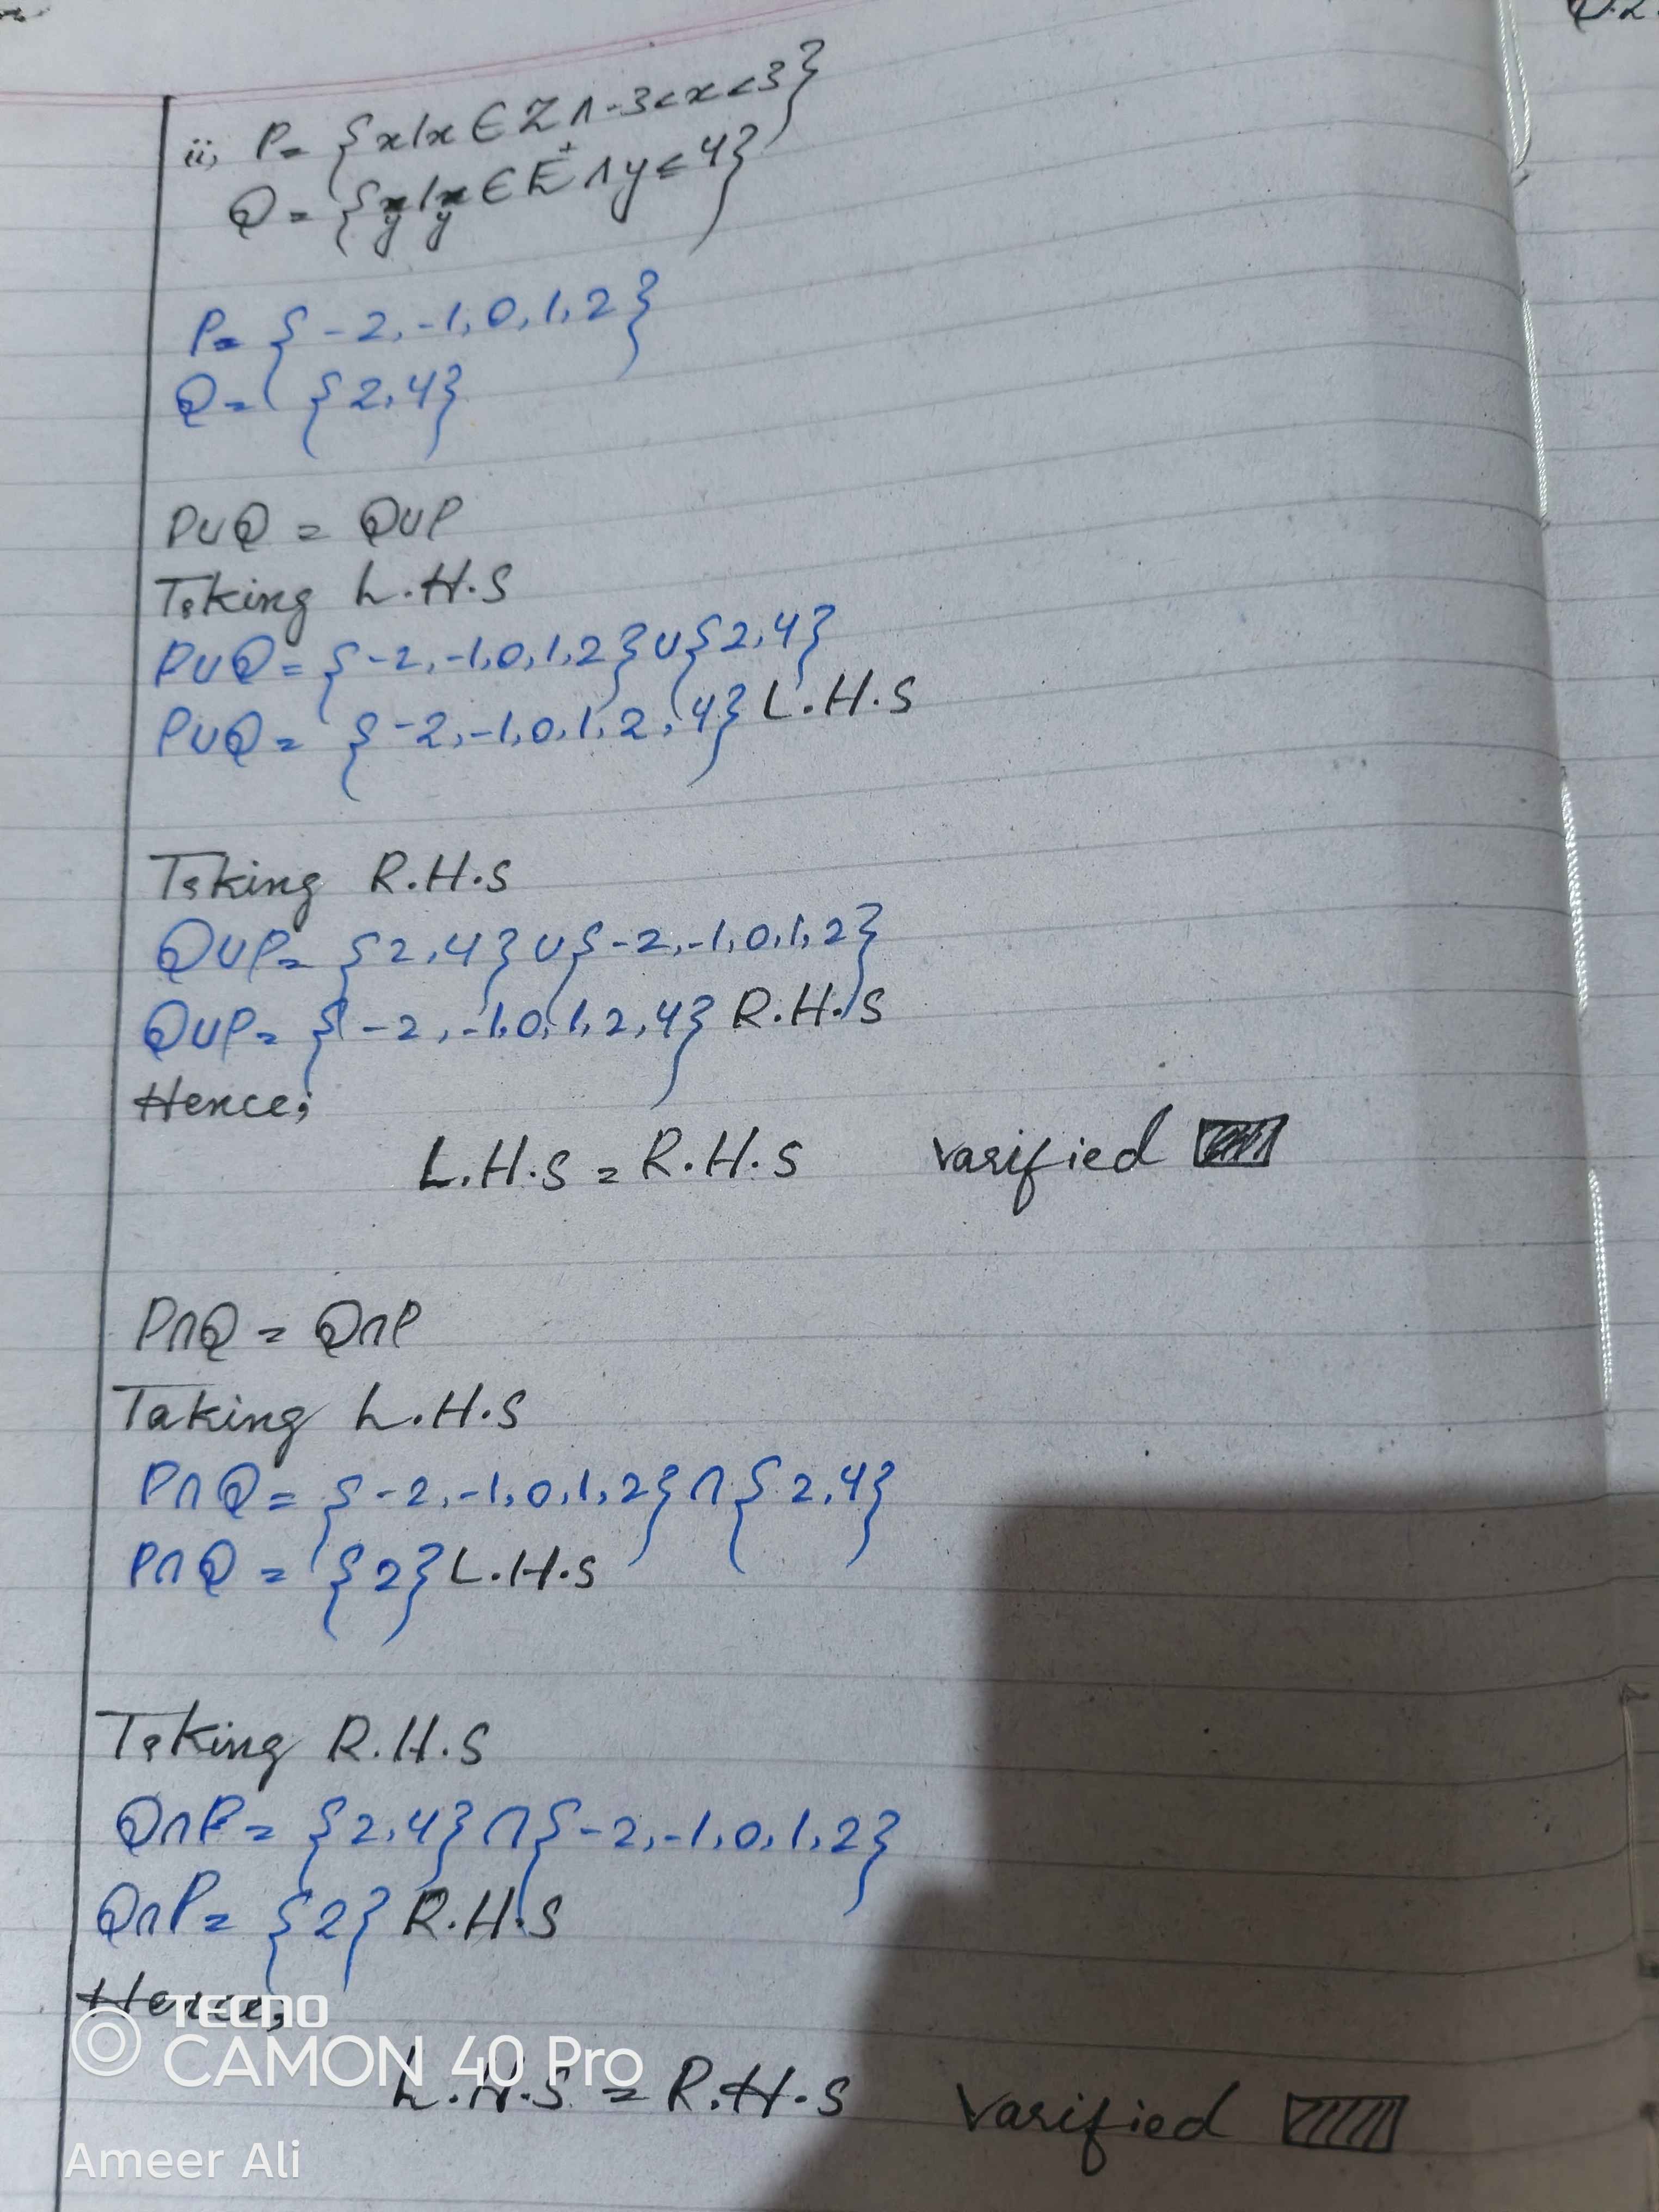 Q.2
ii, P = {x/x ∈ Z ∧ -3 < x < 3}
Q = {y/y ∈ E⁺ ∧ y ≤ 4}
P = {-2, -1, 0, 1, 2}
Q = {2, 4}
P∪Q = Q∪P
Taking L.H.S
P∪Q = {-2, -1, 0, 1, 2} ∪ {2, 4}
P∪Q = {-2, -1, 0, 1, 2, 4} L.H.S
Taking R.H.S
Q∪P = {2, 4} ∪ {-2, -1, 0, 1, 2}
Q∪P = {-2, -1, 0, 1, 2, 4} R.H.S
Hence;
L.H.S = R.H.S varified
P∩Q = Q∩P
Taking L.H.S
P∩Q = {-2, -1, 0, 1, 2} ∩ {2, 4}
P∩Q = {2} L.H.S
Taking R.H.S
Q∩P = {2, 4} ∩ {-2, -1, 0, 1, 2}
Q∩P = {2} R.H.S
Hence,
L.H.S = R.H.S varified
TECNO
CAMON 40 Pro
Ameer Ali